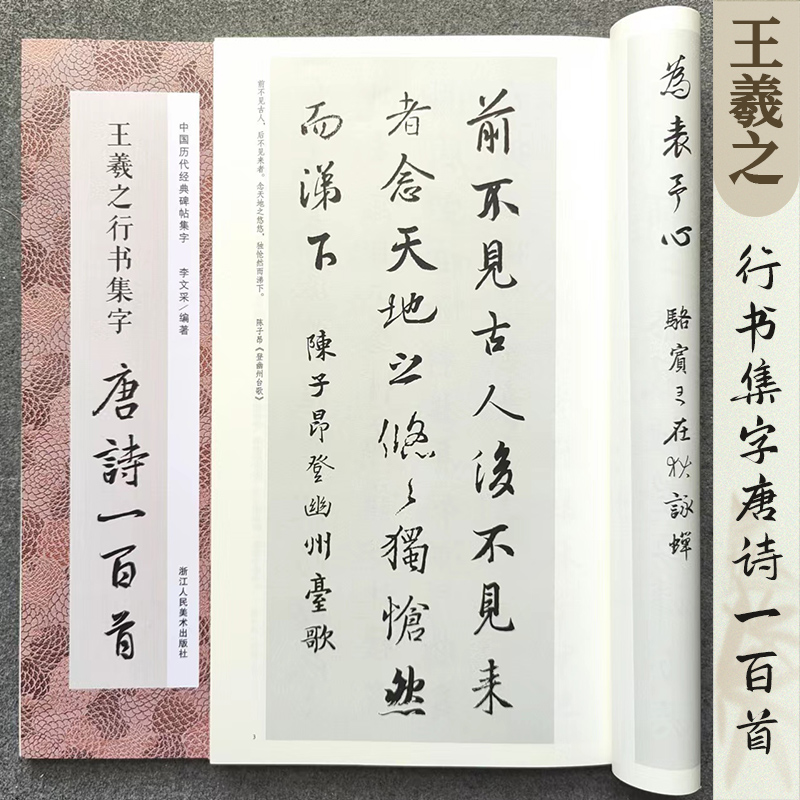 王羲之
行书集字唐诗一百首
为表予心
駱賓王在狱詠蝉
前不見古人後不見来
者念天地之悠々獨愴然
而涕下
陳子昂登幽州臺歌
前不见古人，后不见来者。念天地之悠悠，独怆然而涕下。
陈子昂《登幽州台歌》
3
中国历代经典碑帖集字
李文采/编著
浙江人民美术出版社
王羲之行书集字
唐詩一百首